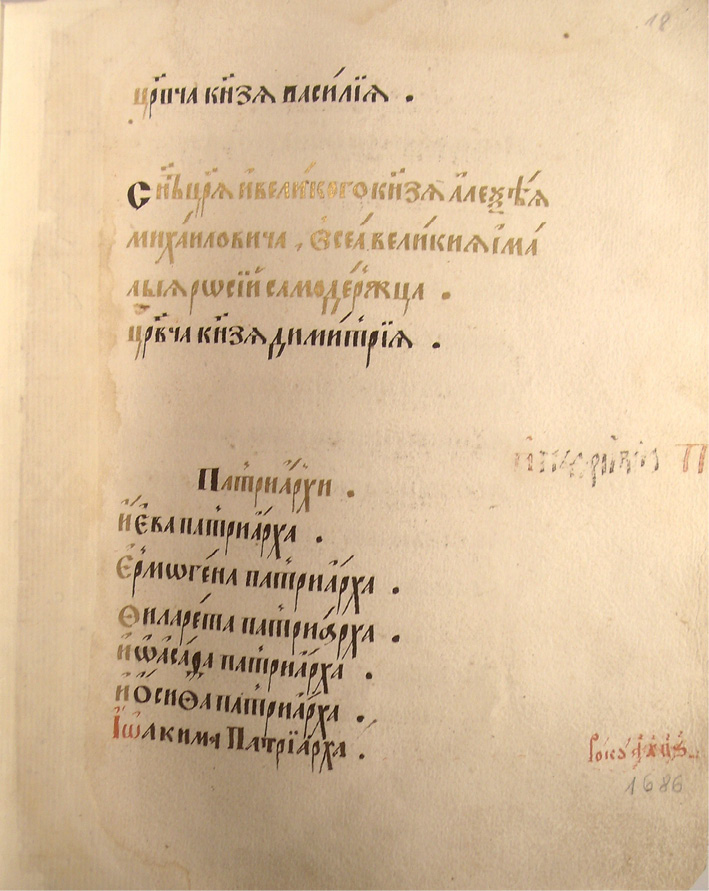 18
црⷭ҇вча кн҃зѧ василїѧ .
Сн҃ъ цр҃ѧ и҆вели́кого кн҃зѧ а҆леѯѣ́ѧ
миха́иловича , Ѳсеа̀ вели́киѧ і҆ма́
лыѧ рѡсїи самоде́ржца .
цр҃вча кн҃зѧ дими́трїѧ .
Патриа́рхи .
и҆е҆ва патриа́рха .
Е҆рмѡге́на патриа́рха .
Ѳиларе́та патриа́рха .
и҆ѡ҆аса́фа патриа́рха .
и҆ѻ҆сиѳа патриа́рха .
І҆ѡакима Патрїа́рха .
Року
1686